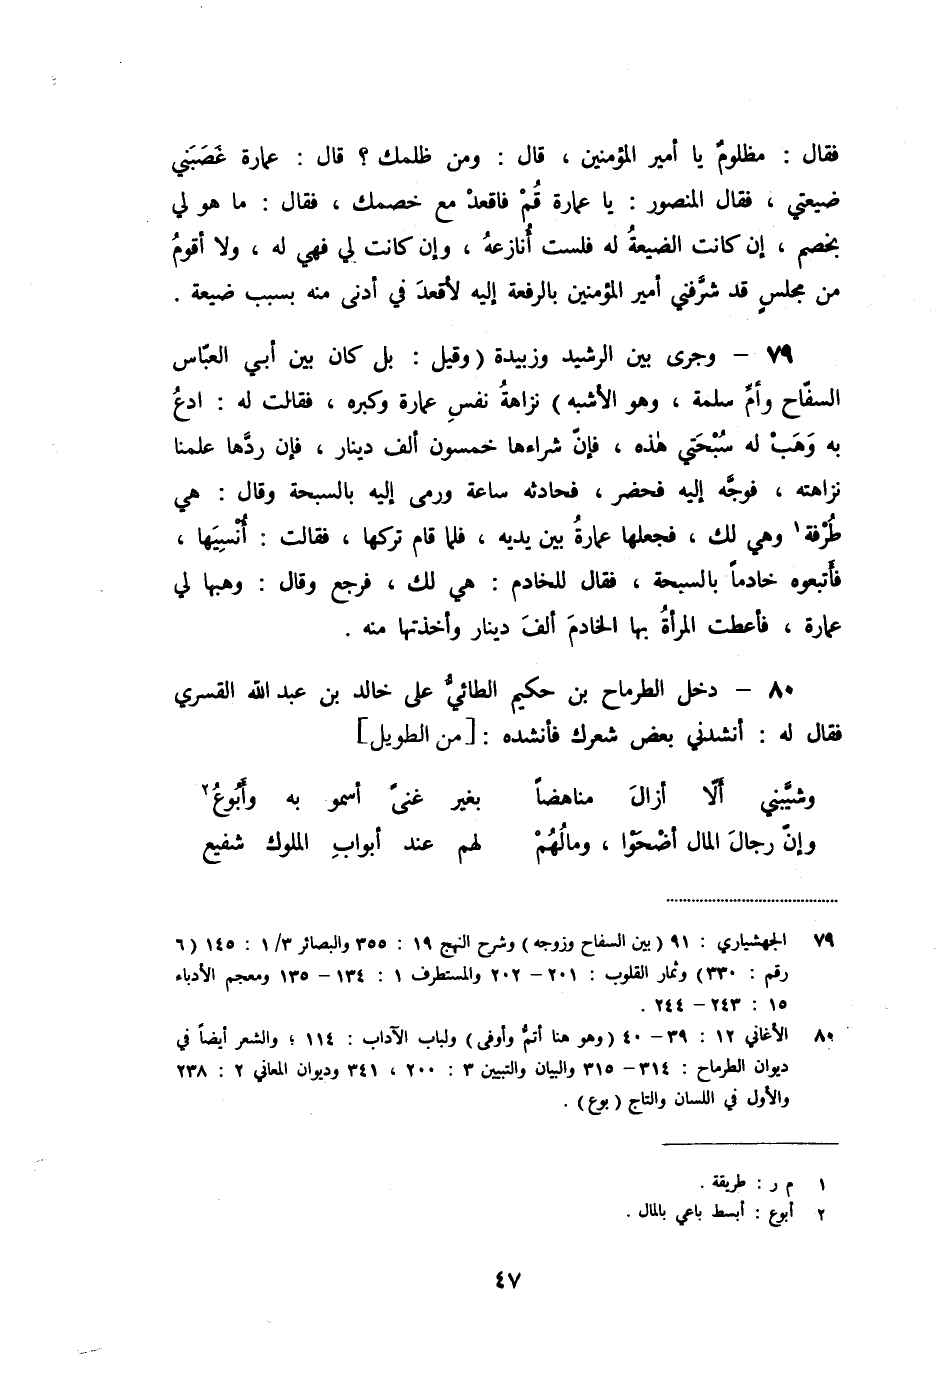 فقال : مظلومٌ يا أمير المؤمنين ، قال : ومن ظلمك ؟ قال : عمارة غَصَبَني
ضيعتي ، فقال المنصور : يا عمارة قُمْ فاقعدْ مع خصمك ، فقال : ما هو لي
بخصم ، إن كانت الضيعةُ له فلست أُنازعهُ ، وإن كانت لي فهي له ، ولا أقومُ
من مجلسٍ قد شرَّفني أمير المؤمنين بالرفعة إليه لأقعدَ في أدنى منه بسبب ضيعة .
٧٩ – وجرى بين الرشيد وزبيدة ( وقيل : بل كان بين أبي العبّاس
السفّاح وأمِّ سلمة ، وهو الأشبه ) نزاهةُ نفسِ عمارة وكبره ، فقالت له : ادعُ
به وَهَبْ له سُبْحَتي هٰذه ، فإنّ شراءها خمسون ألف دينار ، فإن ردَّها علمنا
نزاهته ، فوجَّه إليه فحضر ، فحادثه ساعة ورمى إليه بالسبحة وقال : هي
طُرْفة١ وهي لك ، فجعلها عمارةُ بين يديه ، فلما قام تركها ، فقالت : أُنْسِيَها ،
فأَتبعوه خادماً بالسبحة ، فقال للخادم : هي لك ، فرجع وقال : وهبها لي
عمارة ، فأعطت المرأةُ بها الخادمَ ألفَ دينار وأخذتها منه .
٨٠ – دخل الطرماح بن حكيم الطائيُّ على خالد بن عبد الله القسري
فقال له : أنشدني بعض شعرك فأنشده : [من الطويل]
وشيَّبني أَلّا أزالَ مناهضاً بغير غنىً أسمو به وأَبُوعُ٢
وإنّ رجالَ المال أضْحَوْا ، ومالُهُمْ لهم عند أبوابِ الملوك شفيع
٧٩ الجهشياري : ٩١ ( بين السفاح وزوجه ) وشرح النهج ١٩ : ٣٥٥ والبصائر ٣/ ١ : ١٤٥ ( ٦
رقم : ٣٣٠ ) وثمار القلوب : ٢٠١ – ٢٠٢ والمستطرف ١ : ١٣٤ – ١٣٥ ومعجم الأدباء
١٥ : ٢٤٣ – ٢٤٤ .
٨٠ الأغاني ١٢ : ٣٩ – ٤٠ ( وهو هنا أتمُّ وأوفى ) ولباب الآداب : ١١٤ ؛ والشعر أيضاً في
ديوان الطرماح : ٣١٤ – ٣١٥ والبيان والتبيين ٣ : ٢٠٠ ، ٣٤١ وديوان المعاني ٢ : ٢٣٨
والأول في اللسان والتاج ( بوع ) .
١ م ر : طريقة .
٢ أبوع : أبسط باعي بالمال .
٤٧